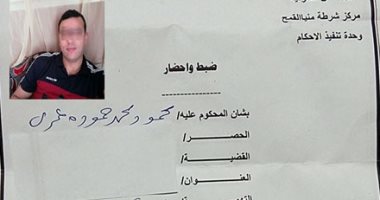 مركز شرطة منيا القمح
وحدة تنفيذ الاحكام
ضبط واحضار
بشان المحكوم عليه/ محمود محمد حموده
الحصر/
القضية/
العنوان/